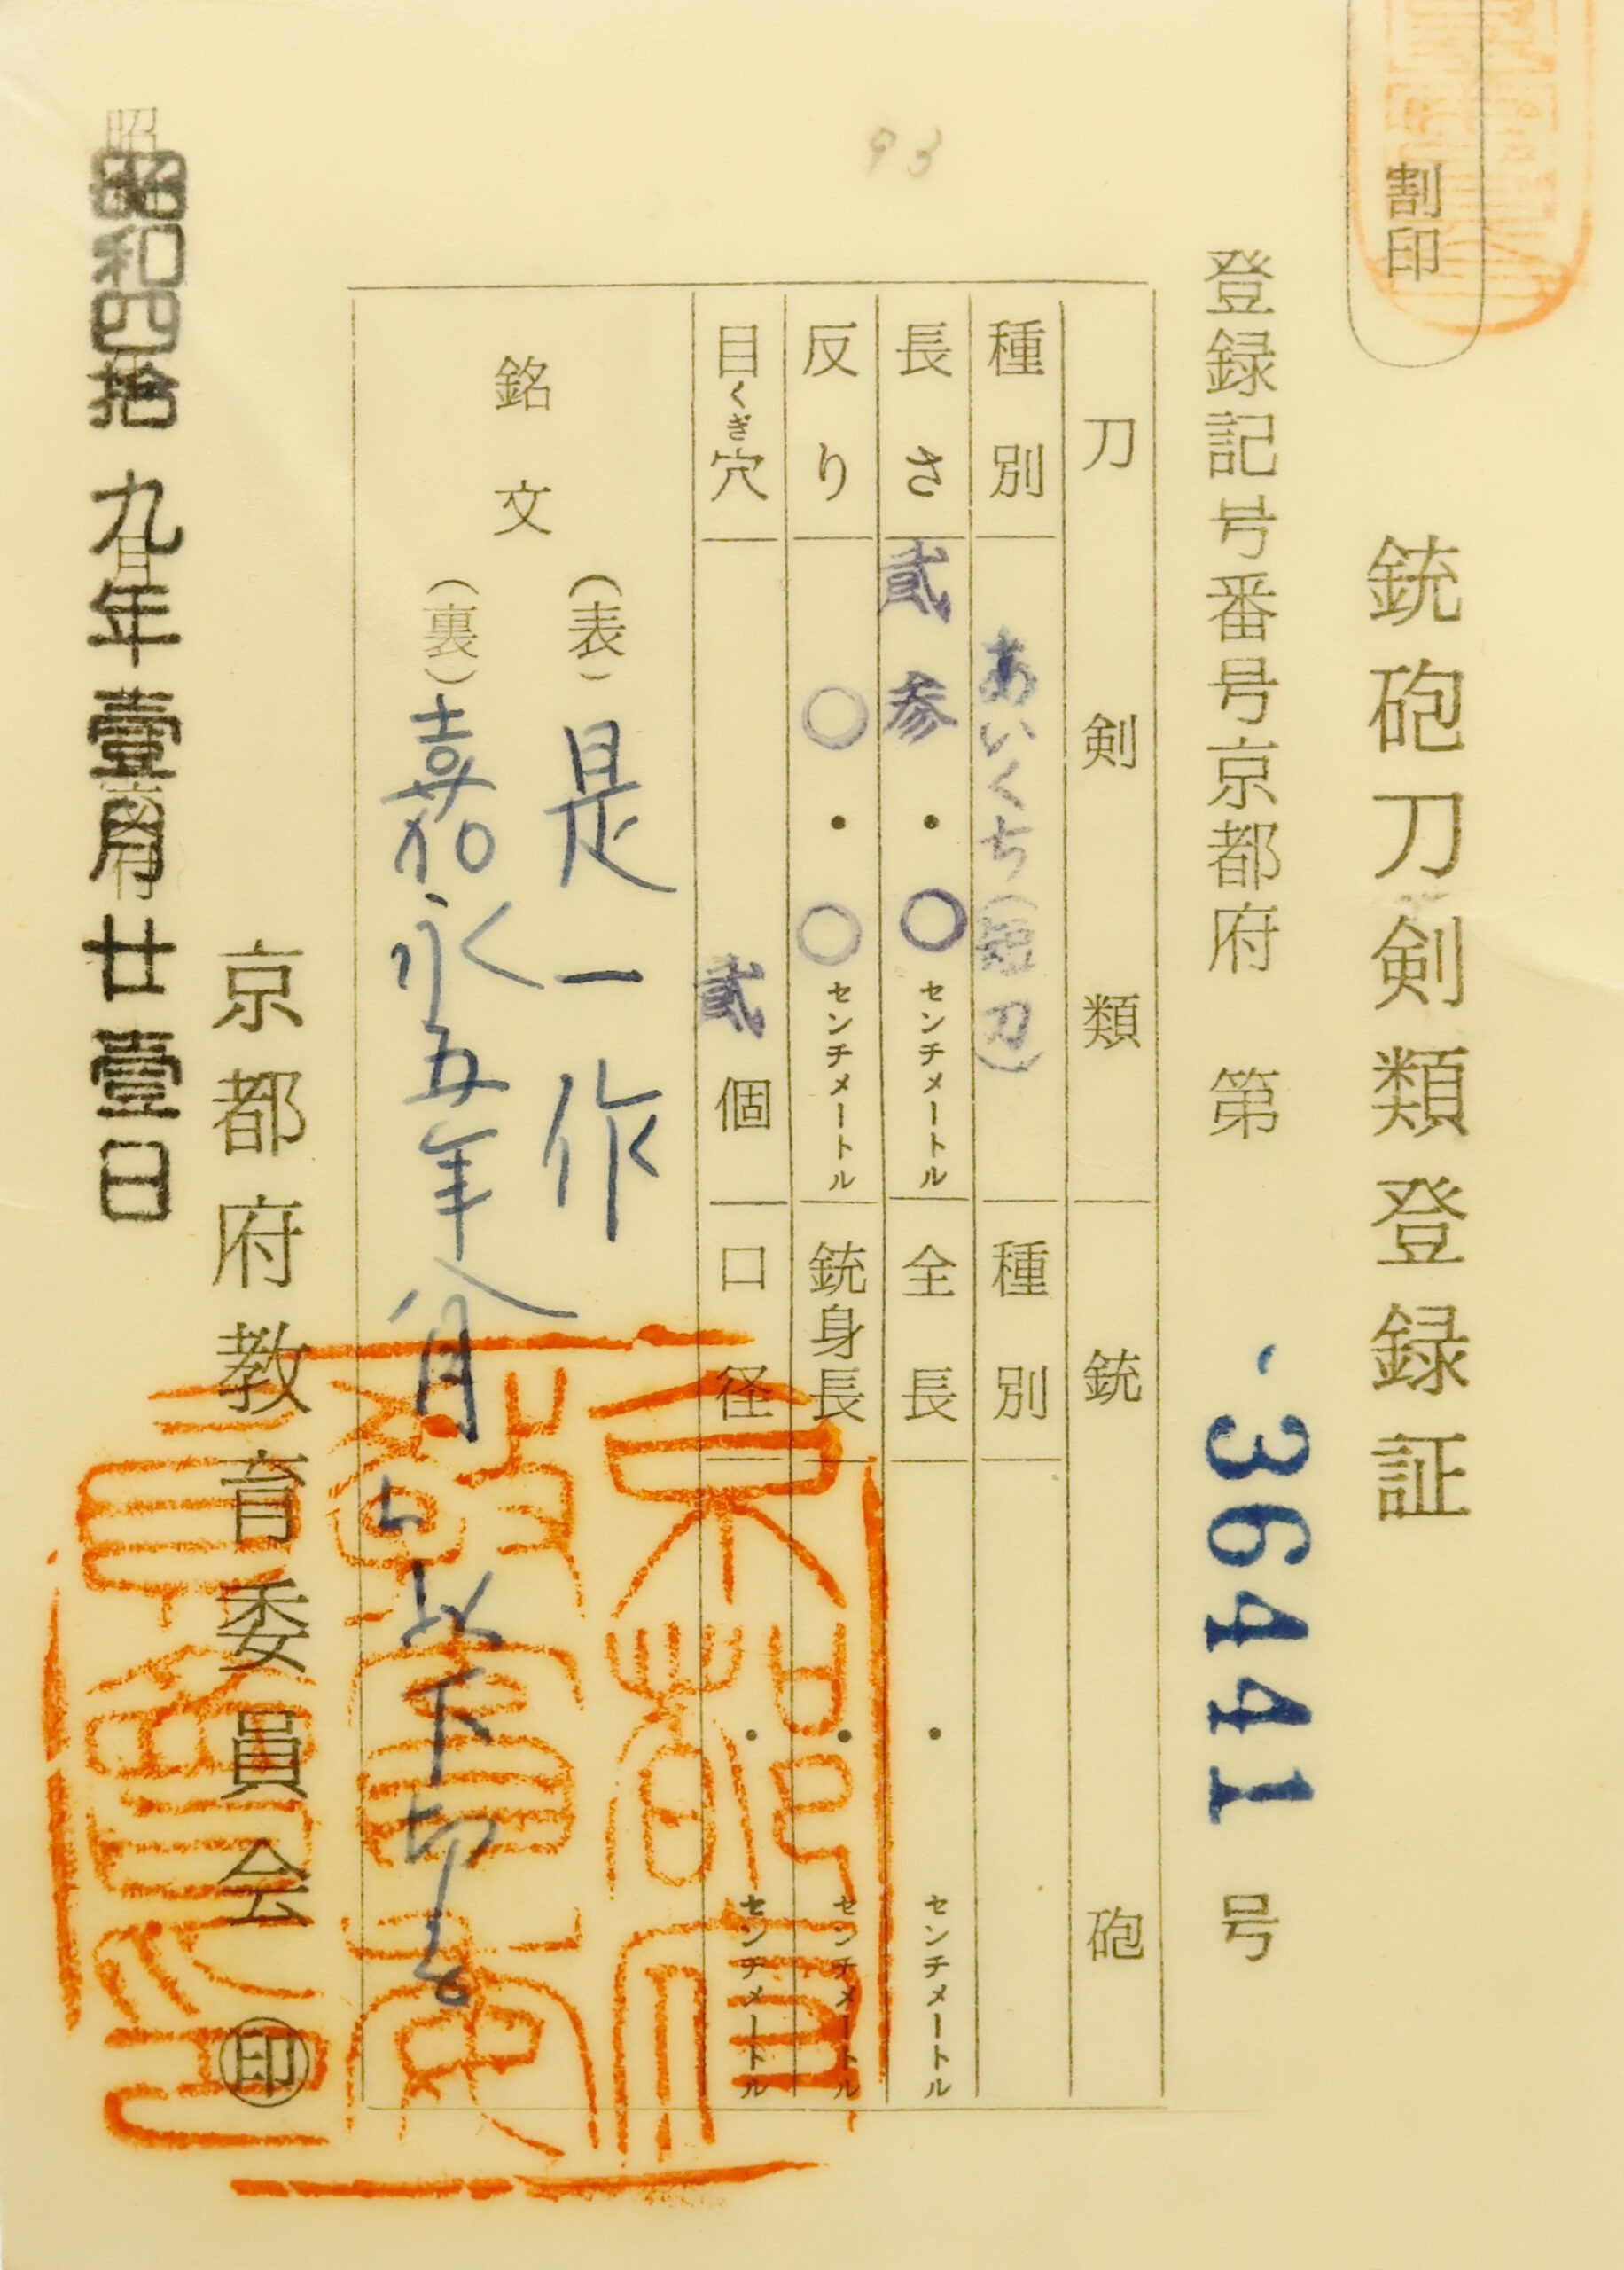 銃砲刀剣類登録証
割印
登録記号番号京都府 第 36441 号
刀剣類 銃砲
種別 あいくち(短刀) 種別
長さ 貳参.〇センチメートル 全長 .センチメートル
反り 〇.〇センチメートル 銃身長 .センチメートル
目くぎ穴 貳個 口径 .センチメートル
銘文
(表) 是一作
(裏) 嘉永五年八月 以下切
京都府教育委員会 印
昭和四拾九年壹月廿壹日
93